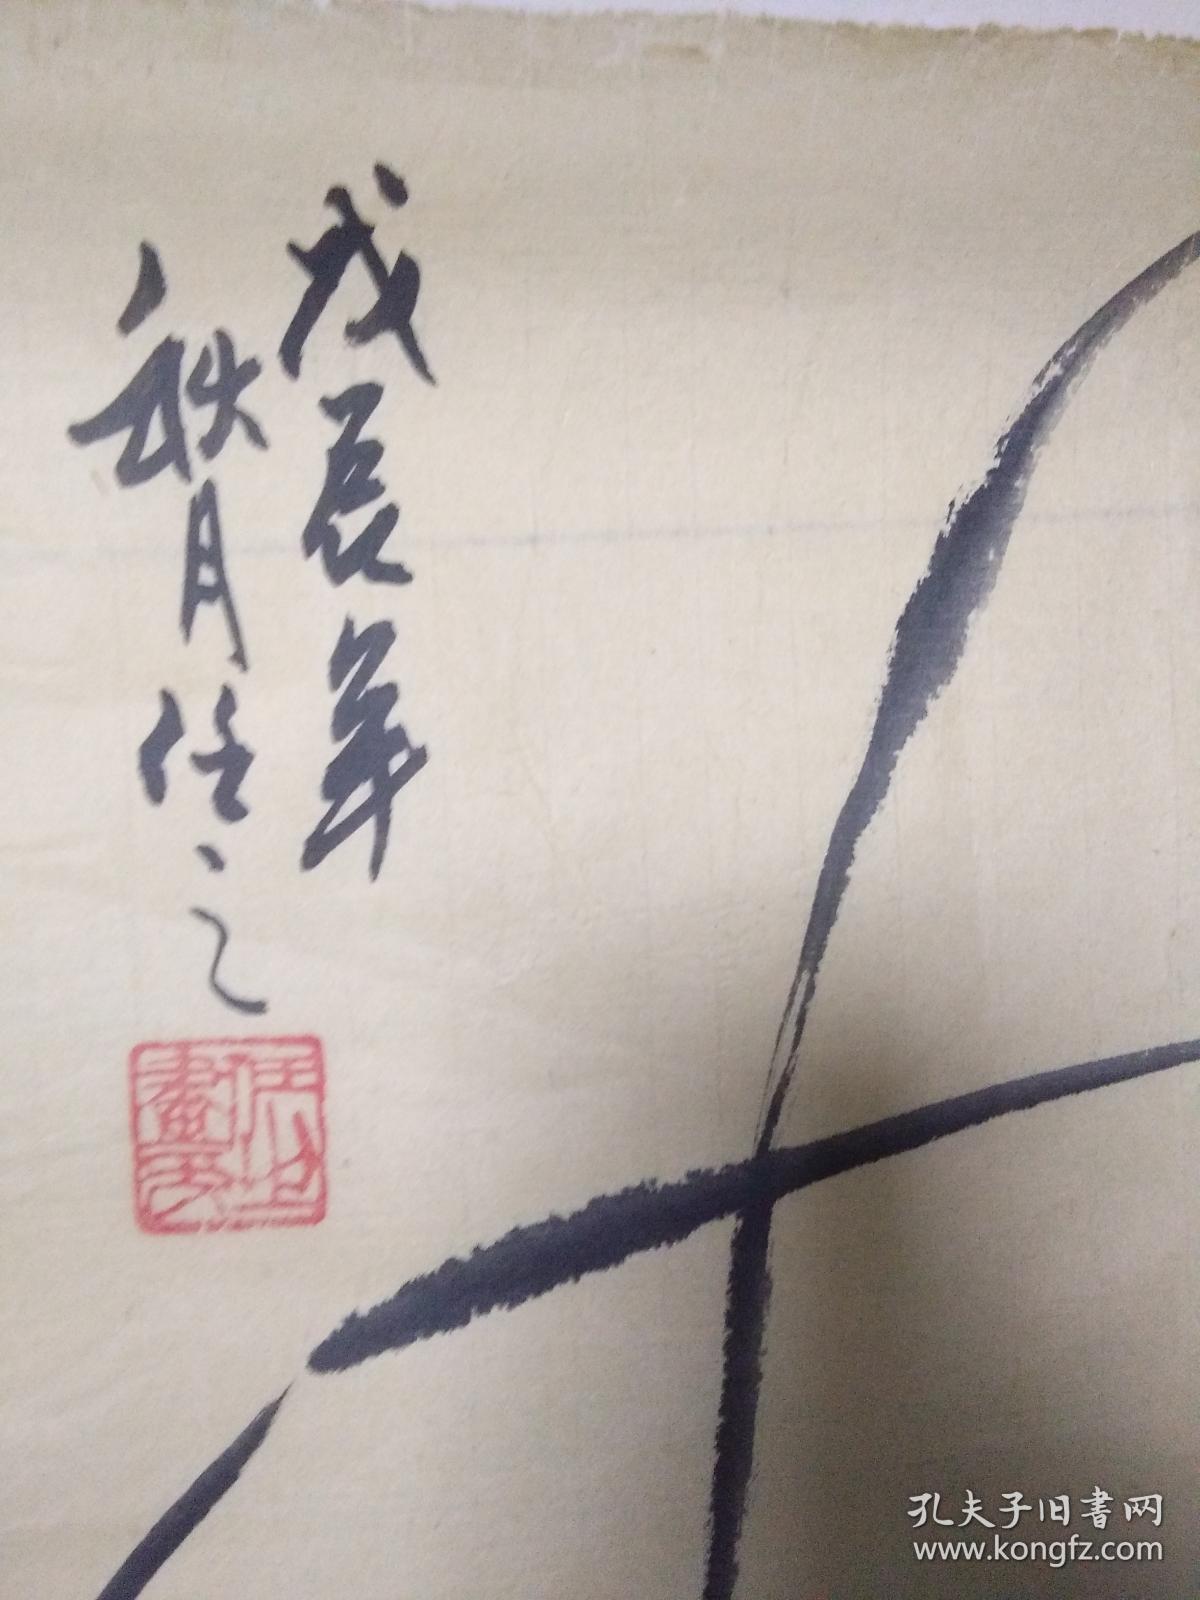 戊辰年
秋月任之
孔夫子旧書网
www.kongfz.com